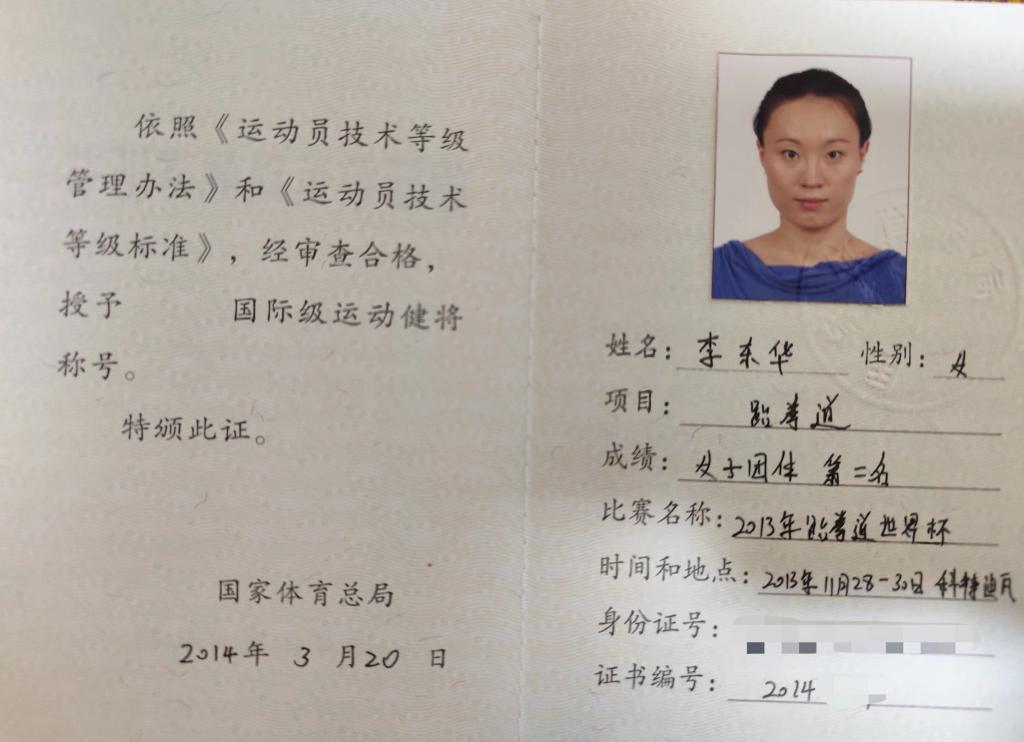 依照《运动员技术等级
管理办法》和《运动员技术
等级标准》，经审查合格，
授予 国际级运动健将
称号。
特颁此证。
国家体育总局
2014年 3 月20 日
姓名：李东华 性别：女
项目：跆拳道
成绩：女子团体 第二名
比赛名称：2013年跆拳道世界杯
时间和地点：2013年11月28-30日 科特迪瓦
身份证号：
证书编号：2014